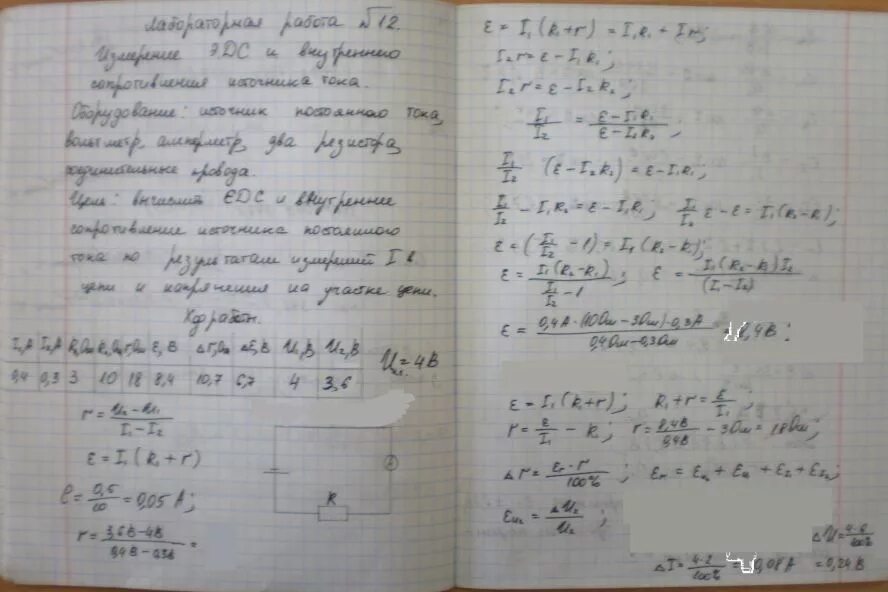 Лабораторная работа №12.
Измерение ЭДС и внутреннего
сопротивления источника тока.
Оборудование: источник постоянного тока,
вольтметр, амперметр, два резистора,
соединительные провода.
Цель: вычислить ЕДС и внутреннее
сопротивление источника постоянного
тока по результатам измерений I в
цепи и напряжения на участке цепи.
Ход работы.
I₁,A I₂,A R₁,Ом R₂,Ом r,Ом ε,В Δr,Ом Δε,В U₁,В U₂,В
0,4 0,3 3 10 18 8,4 10,7 6,7 4 3,6
U = 4В
r = U₂-U₁ / I₁-I₂
ε = I₁(R₁+r)
C = 0,5/10 = 0,05 A;
r = 3,6В-4В / 0,4В-0,3В =
A
R
ε = I₁(R₁+r) = I₁R₁ + Ir;
I₂r = ε - I₁R₁;
I₂r = ε - I₂R₂;
I₁/I₂ = ε-I₁R₁ / ε-I₂R₂;
I₁/I₂ (ε-I₂R₂) = ε-I₁R₁;
I₁/I₂ - I₁R₂ = ε-I₁R₁; I₁/I₂ ε-ε = I₁(R₂-R₁);
ε = (I₁/I₂ -1) = I₁(R₂-R₁);
ε = I₁(R₂-R₁) / I₁/I₂ -1; ε = I₁(R₂-R₁)I₂ / (I₁-I₂)
ε = 0,4A·(10Ом-3Ом)·0,3A / 0,4Ом-0,3Ом = 8,4В;
ε = I₁(R₁+r); R₁+r = ε/I₁;
r = ε/I₁ - R₁; r = 8,4В/0,4В - 3Ом = 18Ом;
Δr = εr·r / 100%; εr = εU₂ + εU₁ + εI₁ + εI₂;
εU₂ = ΔU₂/U₂;
ΔU = 4·6/100%
ΔI = 4·2/100% = 0,08A = 0,24В